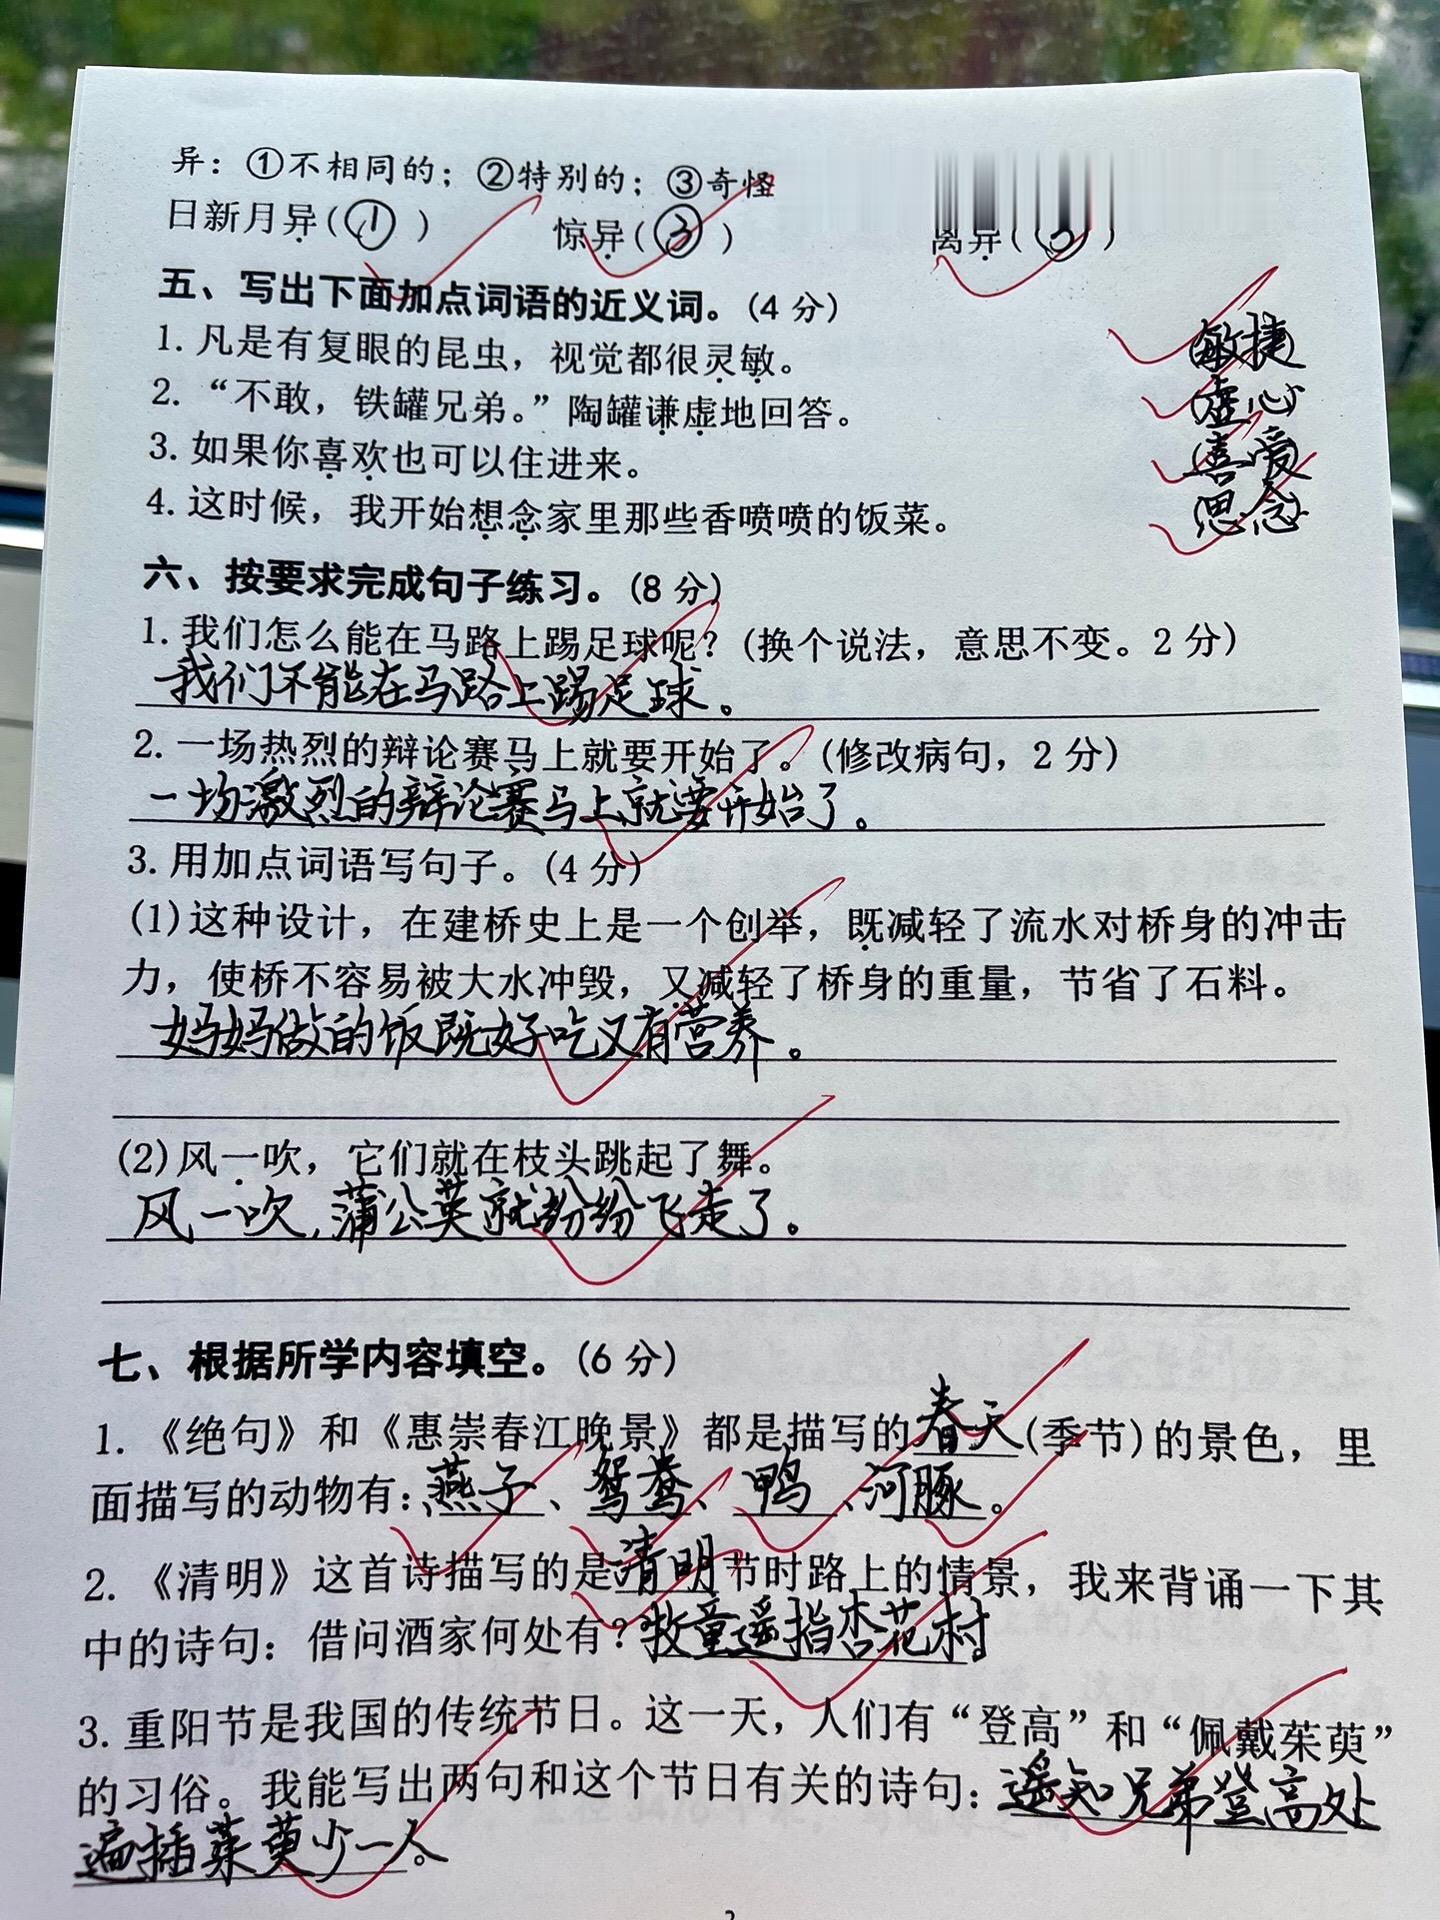 异：①不相同的；②特别的；③奇怪
日新月异(① ) 惊异(③ ) 离异( )
五、写出下面加点词语的近义词。(4 分)
1. 凡是有复眼的昆虫，视觉都很灵敏。 (敏捷)
2. “不敢，铁罐兄弟。”陶罐谦虚地回答。 (虚心)
3. 如果你喜欢也可以住进来。 (喜爱)
4. 这时候，我开始想念家里那些香喷喷的饭菜。 (思念)
六、按要求完成句子练习。(8 分)
1. 我们怎么能在马路上踢足球呢？(换个说法，意思不变。2 分)
我们不能在马路上踢足球。
2. 一场热烈的辩论赛马上就要开始了。(修改病句，2 分)
一场激烈的辩论赛马上就要开始了。
3. 用加点词语写句子。(4 分)
(1)这种设计，在建桥史上是一个创举，既减轻了流水对桥身的冲击
力，使桥不容易被大水冲毁，又减轻了桥身的重量，节省了石料。
妈妈做的饭既好吃又有营养。
(2)风一吹，它们就在枝头跳起了舞。
风一吹，蒲公英就纷纷飞走了。
七、根据所学内容填空。(6 分)
1. 《绝句》和《惠崇春江晚景》都是描写的春天(季节)的景色，里
面描写的动物有：燕子、鸳鸯、鸭、河豚。
2. 《清明》这首诗描写的是清明节时路上的情景，我来背诵一下其
中的诗句：借问酒家何处有？牧童遥指杏花村
3. 重阳节是我国的传统节日。这一天，人们有“登高”和“佩戴茱萸”
的习俗。我能写出两句和这个节日有关的诗句：遥知兄弟登高处
遍插茱萸少一人。
2